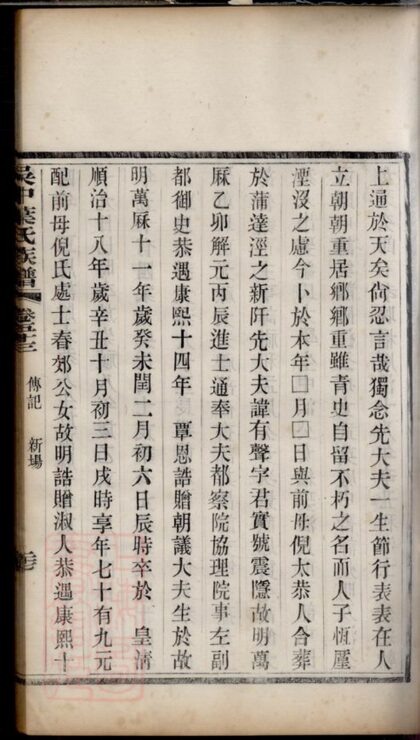 上通於天矣尙忍言哉獨念先大夫一生節行表表在人
立朝朝重居鄉鄉重雖青史自留不朽之名而人子恆廑
湮沒之慮今卜於本年□月□日與前母倪太恭人合葬
於蒲達涇之新阡先大夫諱有聲字君實號震隱故明萬
厤乙卯解元丙辰進士通奉大夫都察院協理院事左副
都御史恭遇康熙十四年　覃恩誥贈朝議大夫生於故
明萬厤十一年歲癸未閏二月初六日辰時卒於　皇清
順治十八年歲辛丑十月初三日戌時享年七十有九元
配前母倪氏處士春郊公女故明誥贈淑人恭遇康熙十
吳中葉氏族譜
傳記　新場